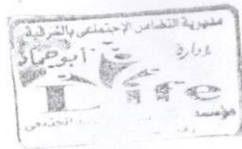 مديرية التضامن الإجتماعى بالشرقية
إدارة أبو حماد
Life
مؤسسة